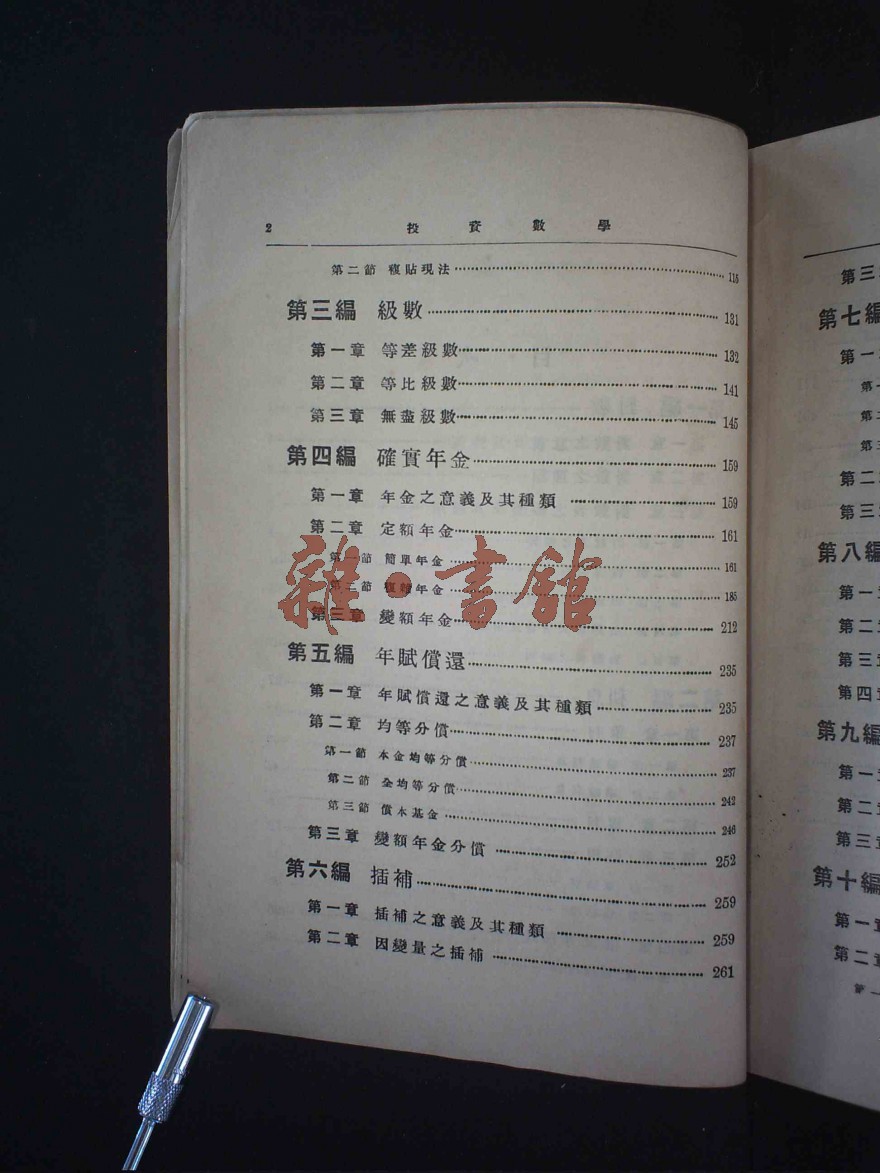 2 投資數學
第二節 複貼現法 115
第三編 級數 131
第一章 等差級數 132
第二章 等比級數 141
第三章 無盡級數 145
第四編 確實年金 159
第一章 年金之意義及其種類 159
第二章 定額年金 161
第一節 簡單年金 161
第二節 年金 185
第三章 變額年金 212
第五編 年賦償還 235
第一章 年賦償還之意義及其種類 235
第二章 均等分償 237
第一節 本金均等分償 237
第二節 全均等分償 242
第三節 償本基金 246
第三章 變額年金分償 252
第六編 插補 259
第一章 插補之意義及其種類 259
第二章 因變量之插補 261
雜·書館
第三
第七編
第一
第一
第二
第三
第二
第三
第八編
第一
第二
第三
第四
第九編
第一
第二
第三
第十編
第一
第二
第一